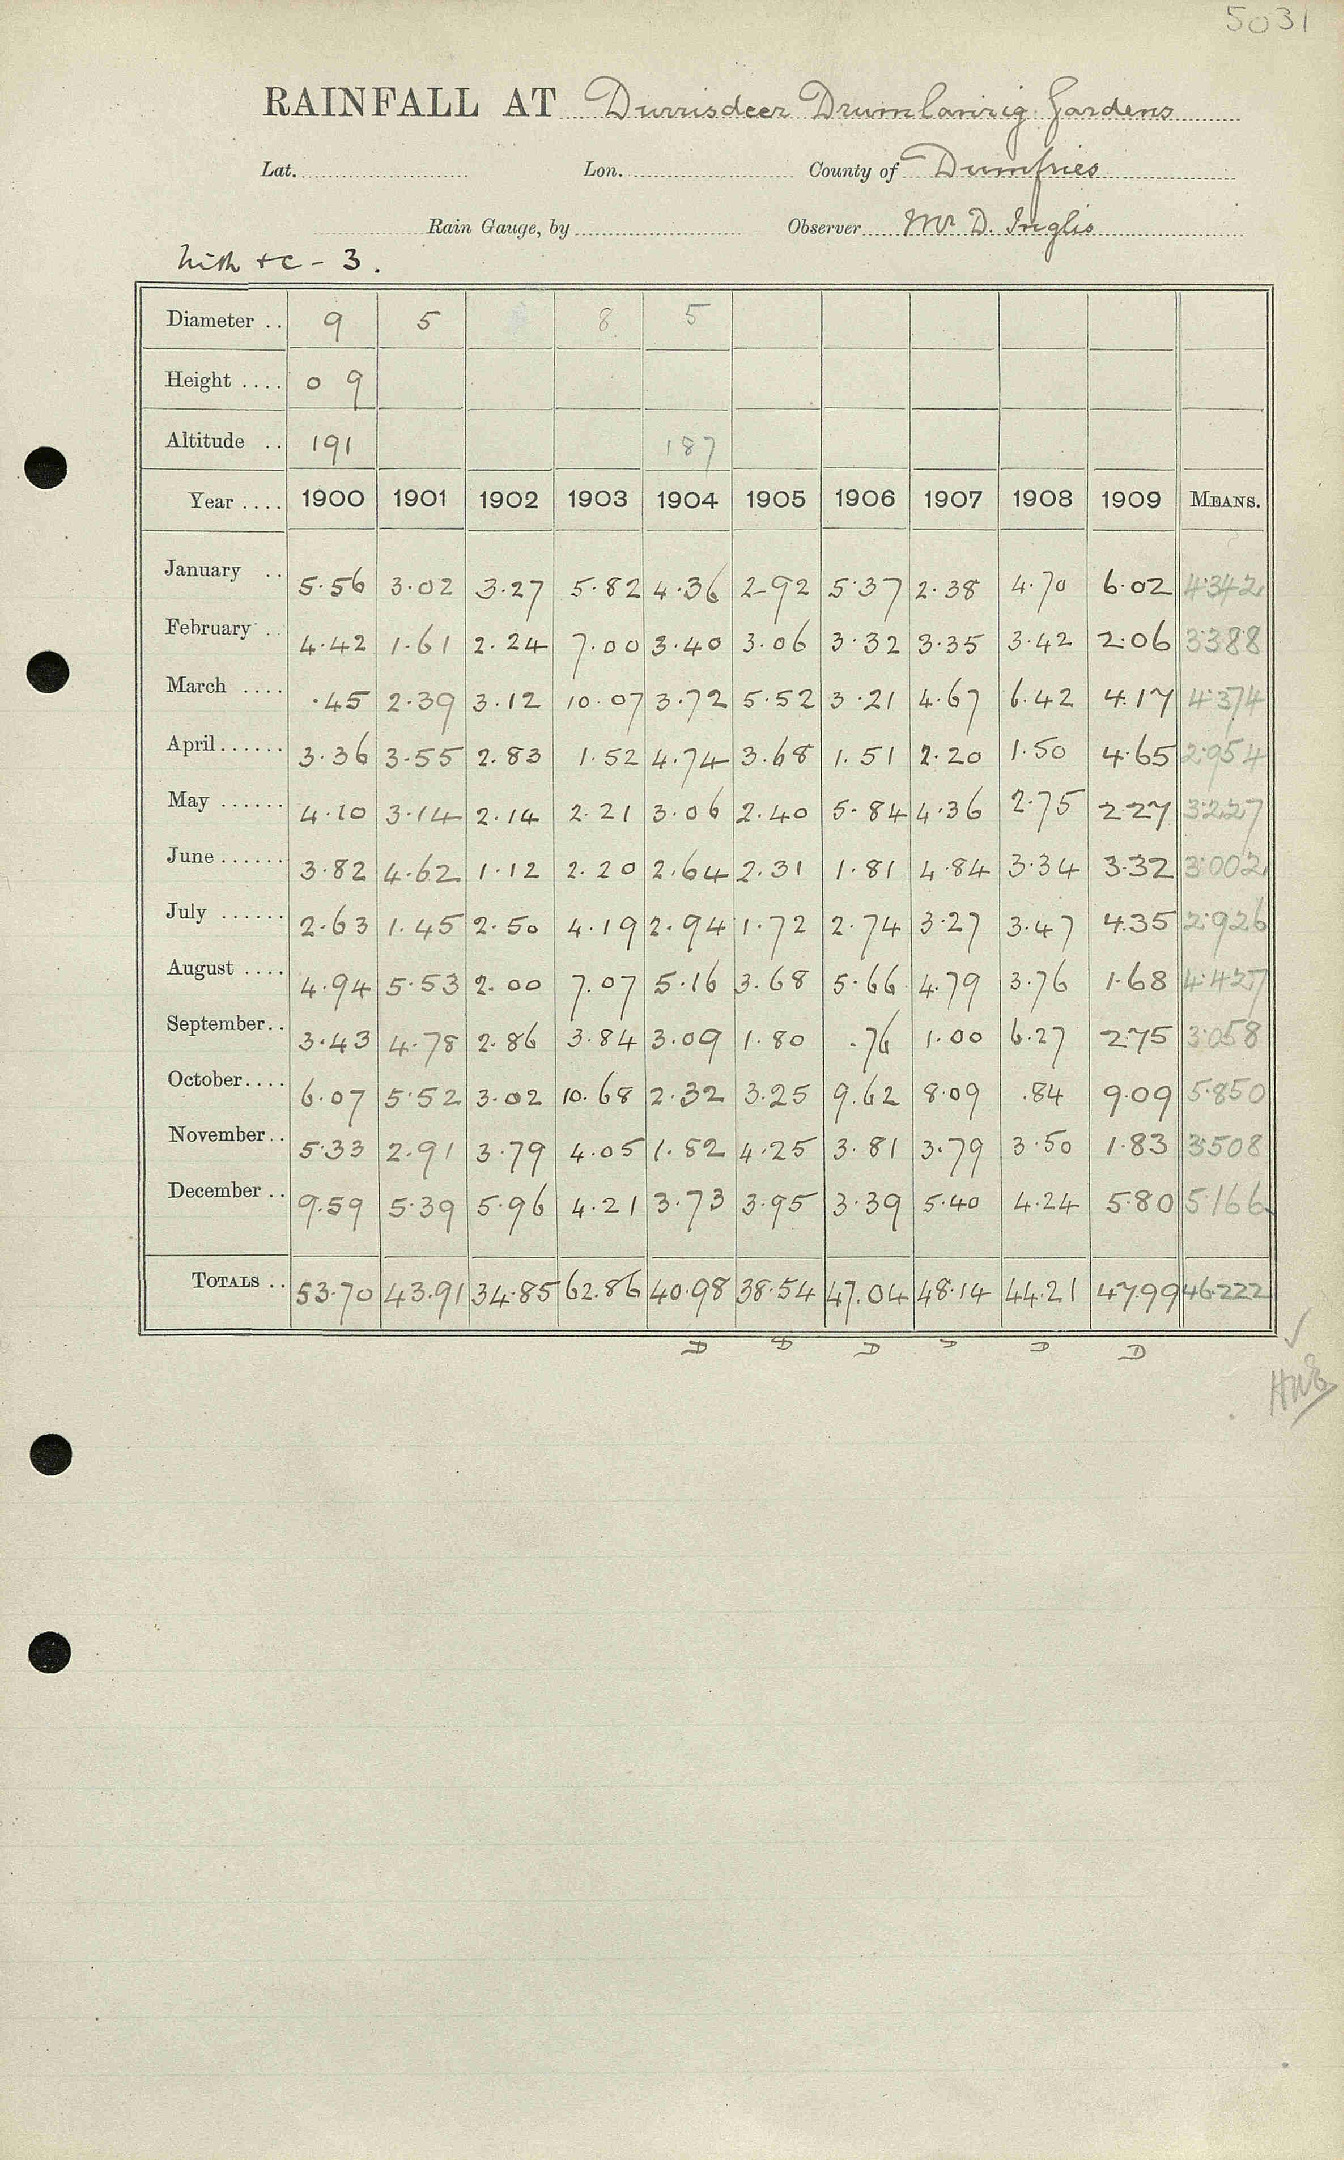 5031
RAINFALL AT Durrisdeer Drumlanrig Gardens
Lat. Lon. County of Dumfries
Rain Gauge, by Observer Mr D. Inglis
Nith &c - 3.
Diameter .. 9 5 8 5
Height .... 0 9
Altitude .. 191 187
Year .... 1900 1901 1902 1903 1904 1905 1906 1907 1908 1909 MEANS.
January .. 5.56 3.02 3.27 5.82 4.36 2.92 5.37 2.38 4.70 6.02 4.342
February .. 4.42 1.61 2.24 7.00 3.40 3.06 3.32 3.35 3.42 2.06 3.388
March .... .45 2.39 3.12 10.07 3.72 5.52 3.21 4.67 6.42 4.17 4.374
April...... 3.36 3.55 2.83 1.52 4.74 3.68 1.51 2.20 1.50 4.65 2.954
May ...... 4.10 3.14 2.14 2.21 3.06 2.40 5.84 4.36 2.75 2.27 3.227
June ...... 3.82 4.62 1.12 2.20 2.64 2.31 1.81 4.84 3.34 3.32 3.002
July ...... 2.63 1.45 2.50 4.19 2.94 1.72 2.74 3.27 3.47 4.35 2.926
August .... 4.94 5.53 2.00 7.07 5.16 3.68 5.66 4.79 3.76 1.68 4.427
September.. 3.43 4.78 2.86 3.84 3.09 1.80 .76 1.00 6.27 2.75 3.058
October.... 6.07 5.52 3.02 10.68 2.32 3.25 9.62 8.09 .84 9.09 5.850
November.. 5.33 2.91 3.79 4.05 1.82 4.25 3.81 3.79 3.50 1.83 3.508
December .. 9.59 5.39 5.96 4.21 3.73 3.95 3.39 5.40 4.24 5.80 5.166
TOTALS .. 53.70 43.91 34.85 62.86 40.98 38.54 47.04 48.14 44.21 47.99 46.222
D D D D D D